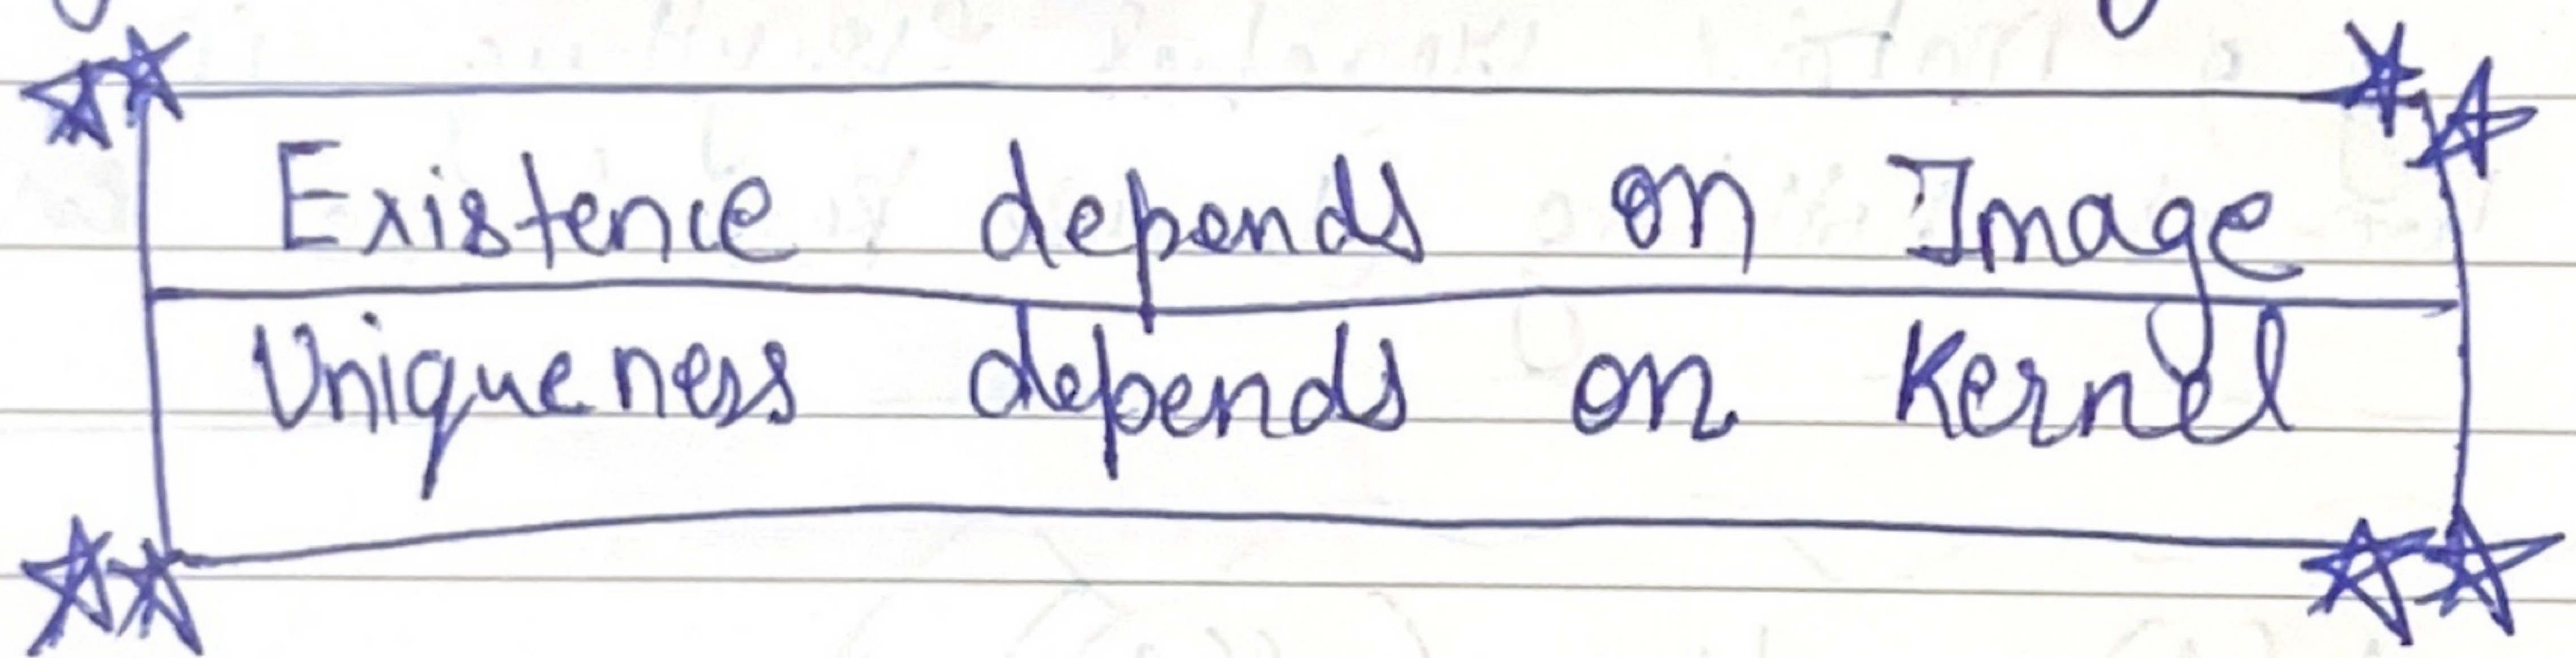 Existence depends on Image
Uniqueness depends on Kernel